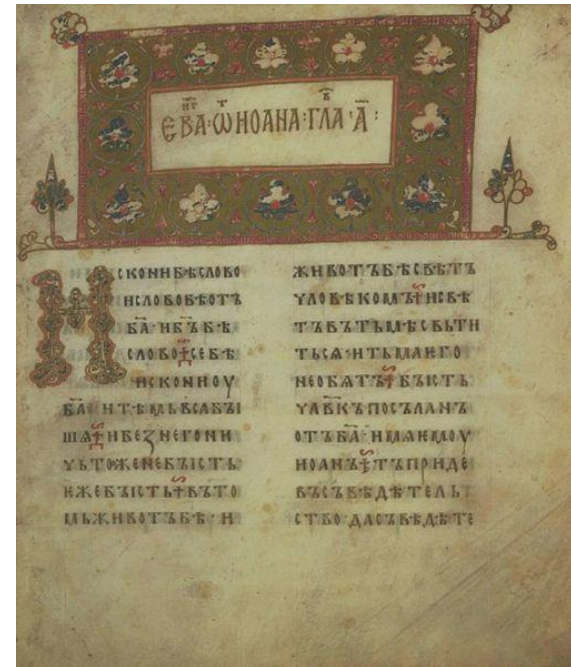 ЕВА҃НГ · Ѿ ИОАНА · ГЛ҃А · А҃ :
ИСКОНИ БѢ СЛОВО
И СЛОВО БѢ ОТЪ
Б҃А · И Б҃Ъ БѢ
СЛОВО · СЕ БѢ
ИСКОНИ ОУ
Б҃А · И ТѢМЬ ВСА БЫ
ШѦ · И БЕЗ НЕГО НИ
ЧЬТОЖЕ НЕ БЫСТЬ
ЕЖЕ БЫСТЬ · ВЪ ТО
МЬ ЖИВОТЪ БѢ · И
ЖИВОТЪ БѢ СВѢТЪ
ЧЛОВѢКОМЪ · И СВѢ
ТЪ ВЪ ТЬМѢ СВЬТИ
ТЬСѦ · И ТЬМА ѤГО
НЕ ОБѦТЪ · БЫСТЬ
ЧЛ҃ВКЪ ПОСЪЛАНЪ
ОТЪ Б҃А · ИМѦ ѤМОУ
ИОАНЪ · ТЪ ПРИДЕ
ВЪ СЪВѢДѢТЕЛЬ
СТВО · ДА СЪВѢДѢТЕ